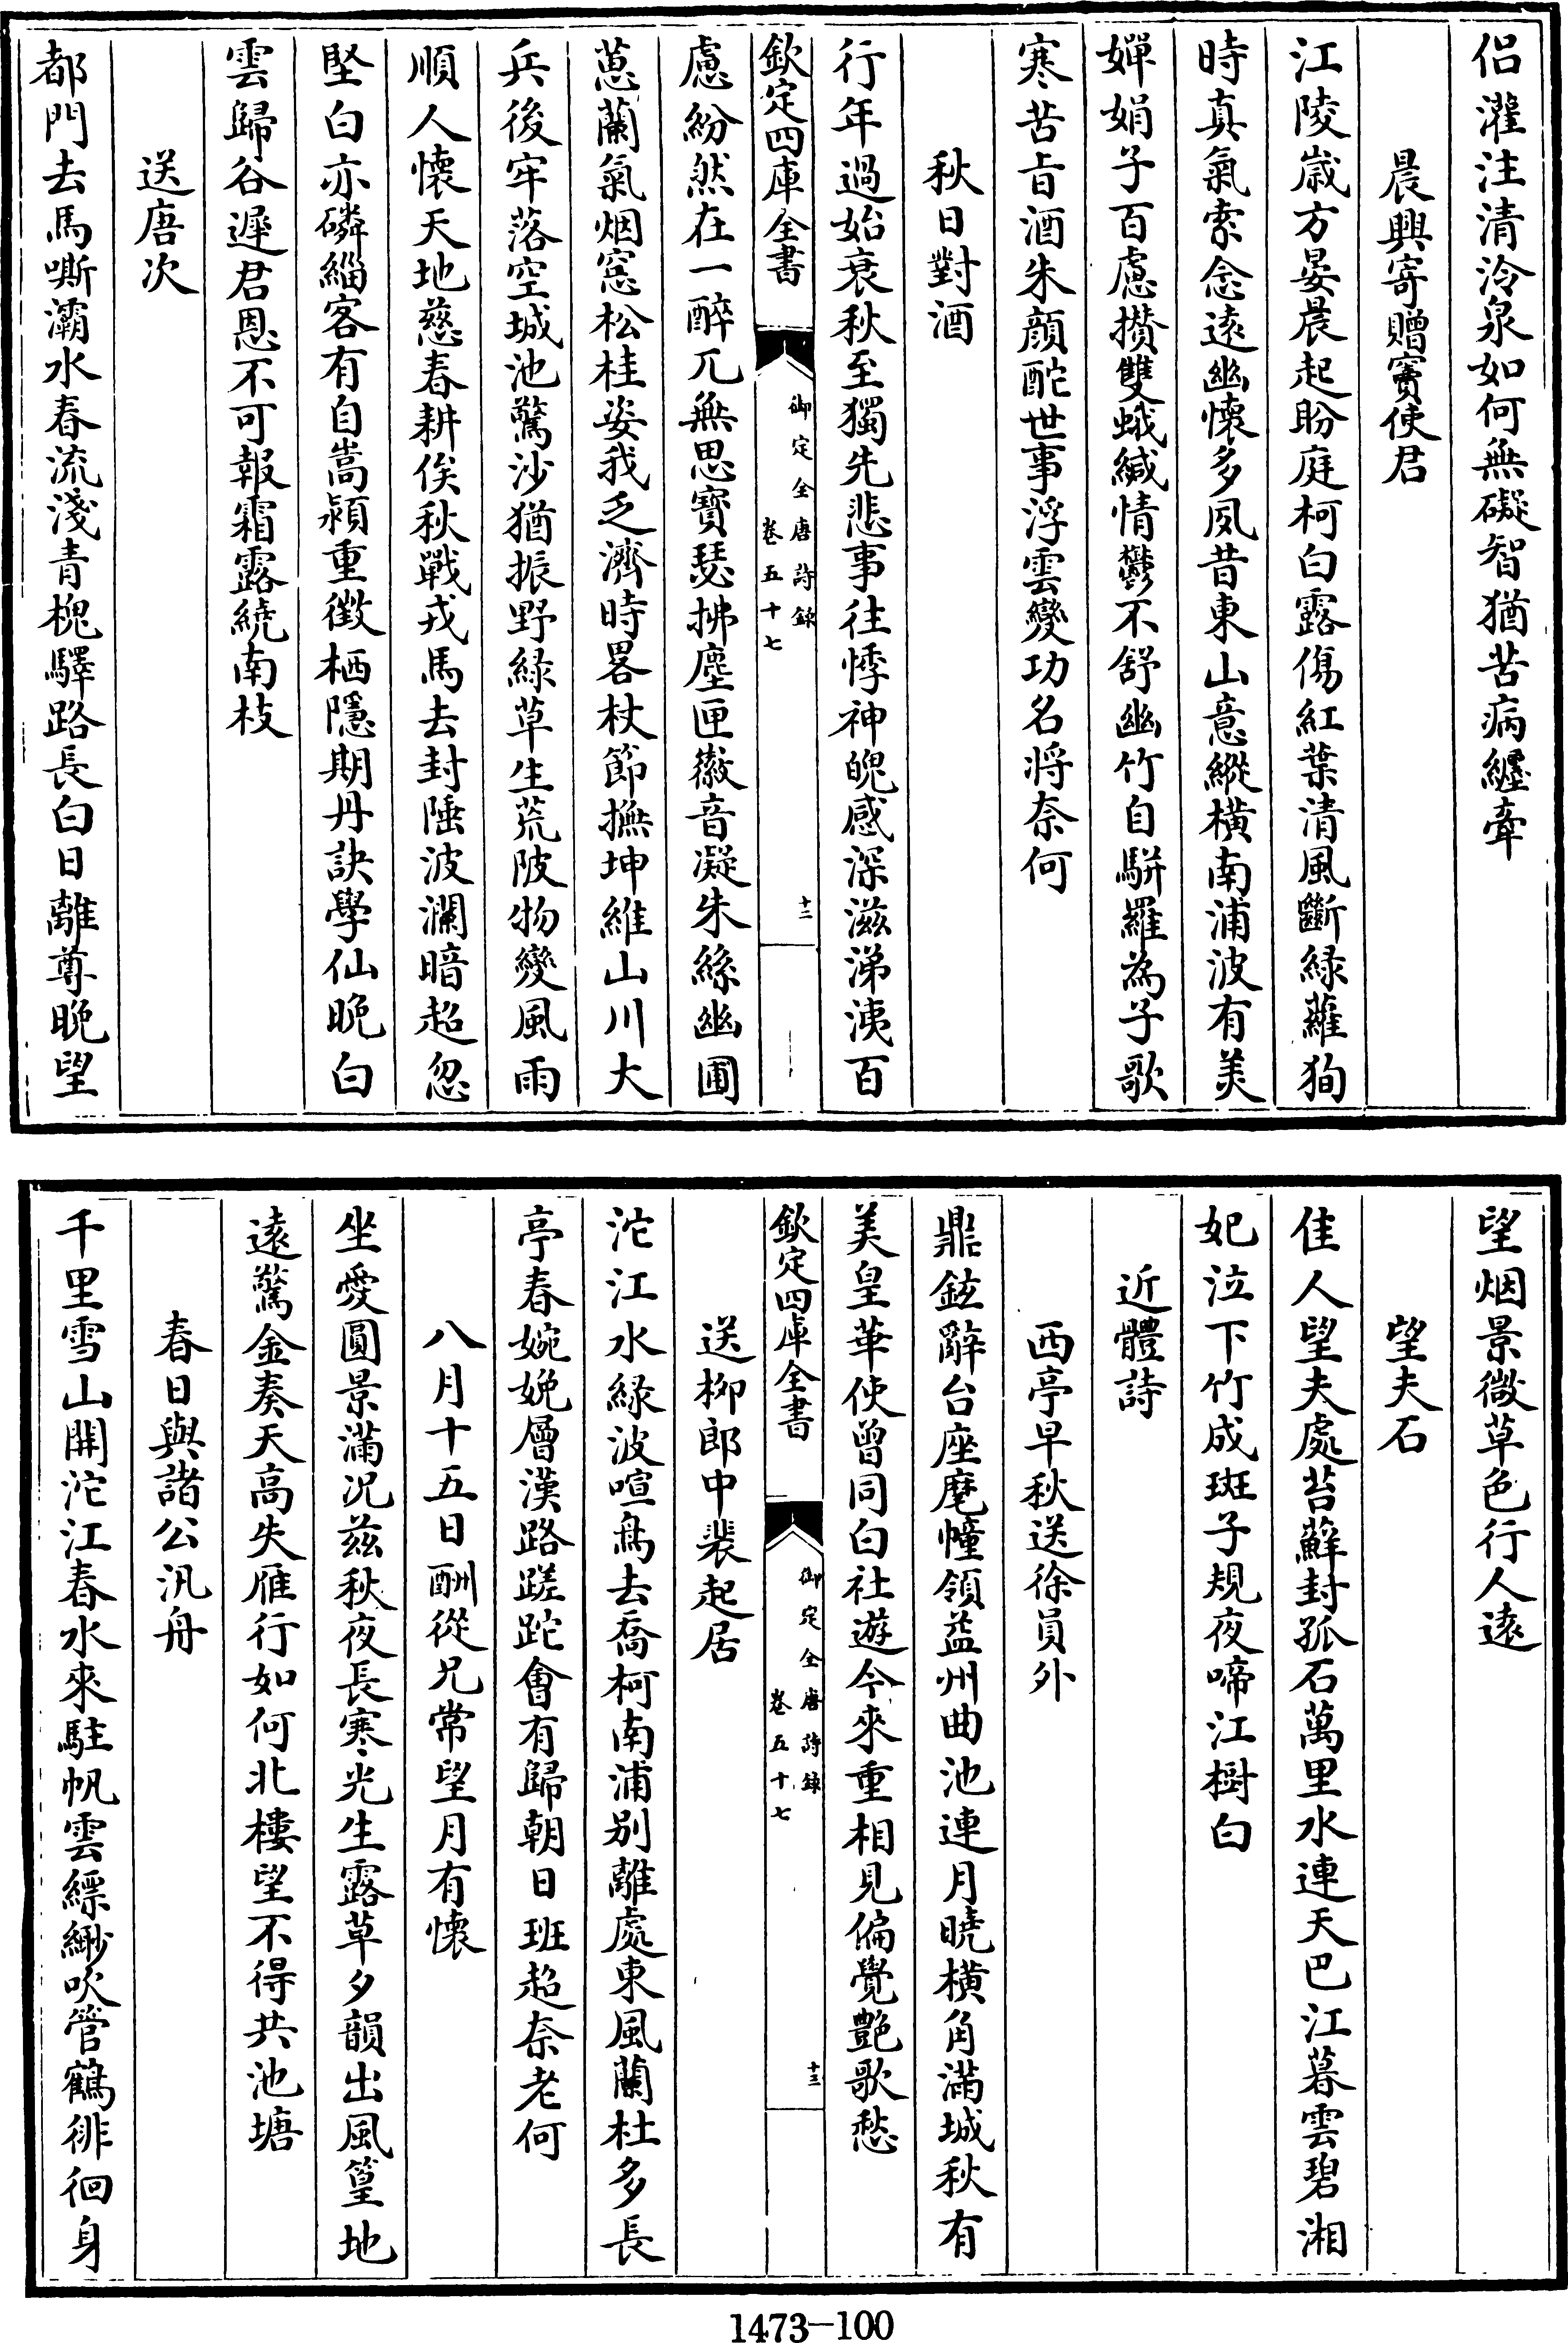 侣灌注清泠泉如何無礙智猶苦病纏牽
晨興寄贈竇使君
江陵歲方晏晨起盼庭柯白露傷紅葉清風斷綠蘿徇
時真氣索念遠幽懷多夙昔東山意縱橫南浦波有美
嬋娟子百慮攢雙蛾緘情鬱不舒幽竹自駢羅為子歌
寒苦旨酒朱顏酡世事浮雲變功名將奈何
秋日對酒
行年過始衰秋至獨先悲事往悸神魄感深滋涕洟百
欽定四庫全書
御定全唐詩錄
卷五十七
十二
慮紛然在一醉兀無思寶瑟拂塵匣徽音凝朱絲幽圃
蕙蘭氣烟窓松桂姿我乏濟時畧杖節撫坤維山川大
兵後牢落空城池驚沙猶振野綠草生荒陂物變風雨
順人懷天地慈春耕俟秋戰戎馬去封陲波瀾暗超忽
堅白亦磷緇客有自嵩潁重徵栖隱期丹訣學仙晚白
雲歸谷遲君恩不可報霜露繞南枝
送唐次
都門去馬嘶灞水春流淺青槐驛路長白日離尊晚望
望烟景微草色行人遠
望夫石
佳人望夫處苔蘚封孤石萬里水連天巴江暮雲碧湘
妃泣下竹成斑子規夜啼江樹白
近體詩
西亭早秋送徐員外
鼎鉉辭台座麾幢領益州曲池連月曉橫角滿城秋有
美皇華使曾同白社遊今來重相見偏覺艷歌愁
欽定四庫全書
御定全唐詩錄
卷五十七
十三
送柳郎中裴起居
沱江水綠波喧鳥去喬柯南浦別離處東風蘭杜多長
亭春婉娩層漢路蹉跎會有歸朝日班超奈老何
八月十五日酬從兄常望月有懷
坐愛圓景滿況茲秋夜長寒光生露草夕韻出風篁地
遠驚金奏天高失雁行如何北樓望不得共池塘
春日與諸公汎舟
千里雪山開沱江春水來駐帆雲縹緲吹管鶴徘徊身
1473—100